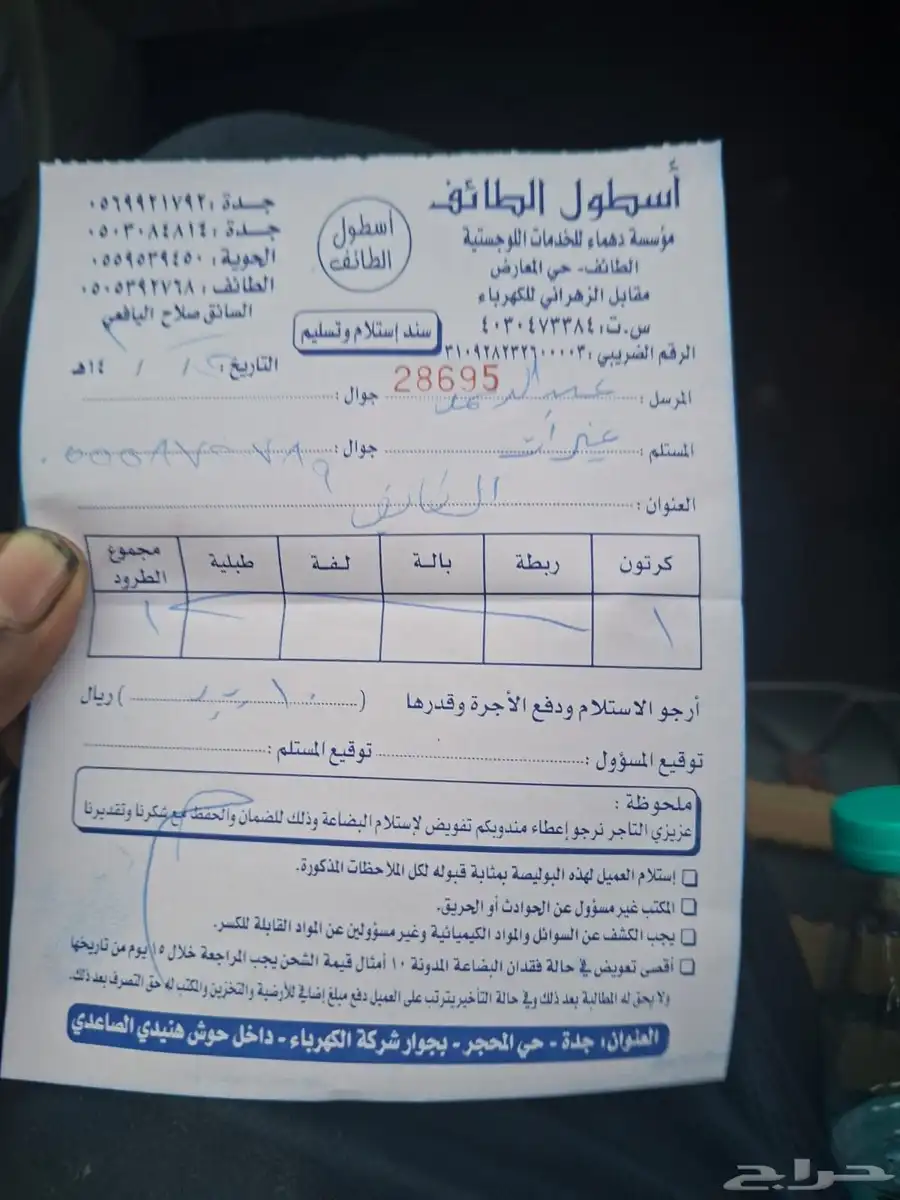 أسطول الطائف
مؤسسة دهماء للخدمات اللوجستية
الطائف - حي المعارض
مقابل الزهراني للكهرباء
س.ت: ٤٠٣٠٤٧٣٣٨٤
الرقم الضريبي: ٣١٠٩٢٨٢٣٢٦٠٠٠٠٣
أسطول
الطائف
سند إستلام وتسليم
28695
جدة: ٠٥٦٩٩٢١٧٩٢
جدة: ٠٥٠٣٠٨٤٨١٤
الحوية: ٠٥٥٩٥٣٩٤٥٠
الطائف: ٠٥٠٥٣٩٢٧٦٨
السائق صلاح اليافعي
التاريخ: / / ١٤هـ
المرسل: جوال:
المستلم: جوال:
العنوان: الطائف
كرتون ربطة بالة لفة طبلية مجموع الطرود
١ ١
أرجو الاستلام ودفع الأجرة وقدرها ( ) ريال
توقيع المسؤول: توقيع المستلم:
ملحوظة:
عزيزي التاجر نرجو إعطاء مندوبكم تفويض لإستلام البضاعة وذلك للضمان والحفظ مع شكرنا وتقديرنا
إستلام العميل لهذه البوليصة بمثابة قبوله لكل الملاحظات المذكورة.
المكتب غير مسؤول عن الحوادث أو الحريق.
يجب الكشف عن السوائل والمواد الكيميائية وغير مسؤولين عن المواد القابلة للكسر.
أقسى تعويض في حالة فقدان البضاعة المدونة ١٠ أمثال قيمة الشحن يجب المراجعة خلال ١٥ يوم من تاريخها
ولا يحق له المطالبة بعد ذلك وفي حالة التأخير يترتب على العميل دفع مبلغ إضافي للأرضية والتخزين والمكتب له حق التصرف بعد ذلك.
العنوان: جدة - حي المحجر - بجوار شركة الكهرباء - داخل حوش هنيدي الصاعدي
حراج